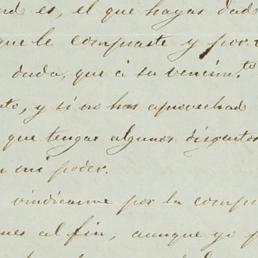 es, el que hayas dado
que le compraste y por
duda, que á su vencim.to
y si no has aprovechad
que tengas algunos disgustos
mi poder.
vindicarme por la compr
al fin, aunque yo